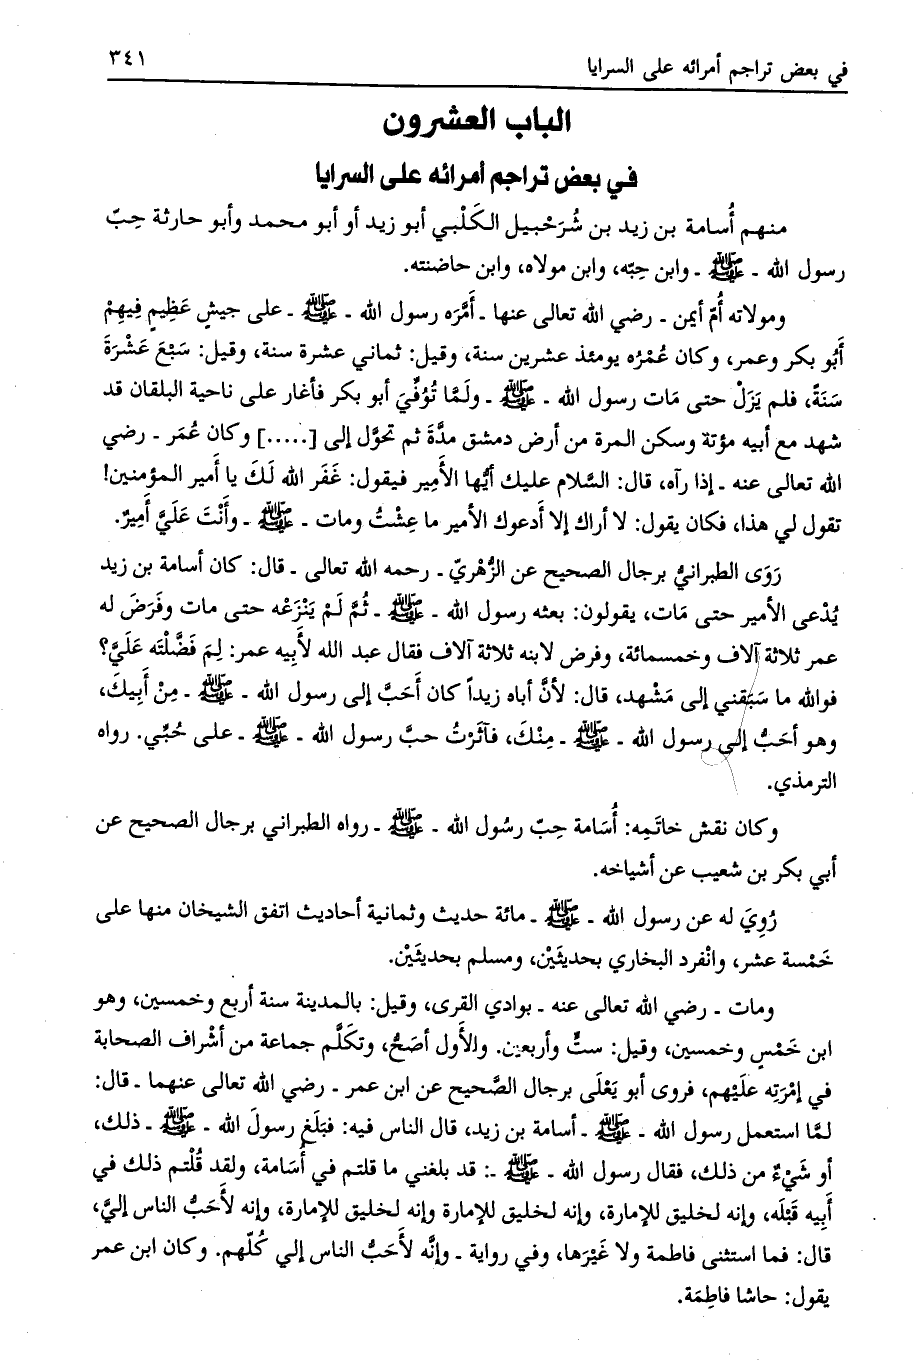 في بعض تراجم أمرائه على السرايا ٣٤١
الباب العشرون
في بعض تراجم أمرائه على السرايا
منهم أُسامة بن زيد بن شُرَحْبيل الكَلْبي أبو زيد أو أبو محمد وأبو حارثة حِبّ
رسول الله ـ ﷺ ـ وابن حِبّه، وابن مولاه، وابن حاضنته.
ومولاته أُمّ أيمن ـ رضي الله تعالى عنها ـ أَمَّرَه رسول الله ـ ﷺ ـ على جيشٍ عَظِيمٍ فِيهِمْ
أَبُو بكر وعمر، وكان عُمْرُه يومئذ عشرين سنة، وقيل: ثماني عشرة سنة، وقيل: سَبْعَ عَشْرَةَ
سَنَةً، فلم يَزَلْ حتى مَات رسول الله ـ ﷺ ـ ولَمَّا تُوُفِّيَ أبو بكر فأغار على ناحية البلقان قد
شهد مع أبيه مؤتة وسكن المرة من أرض دمشق مدَّةَ ثم تحوَّل إلى [.....] وكان عُمَر ـ رضي
الله تعالى عنه ـ إذا رآه، قال: السَّلام عليك أيُّها الأَمِير فيقول: غَفَر الله لَكَ يا أمير المؤمنين!
تقول لي هذا، فكان يقول: لا أراك إلا أَدعوك الأمير ما عِشْتُ ومات ـ ﷺ ـ وأَنْتَ عَلَيَّ أَمِيرٌ.
رَوَى الطبرانيُّ برجال الصحيح عن الزُّهْريّ ـ رحمه الله تعالى ـ قال: كان أسامة بن زيد
يُدْعى الأمير حتى مَات، يقولون: بعثه رسول الله ـ ﷺ ـ ثُمَّ لَمْ يَنْزَعْه حتى مات وفَرَضَ له
عمر ثلاثة آلاف وخمسمائة، وفرض لابنه ثلاثة آلاف فقال عبد الله لأبيه عمر: لِمَ فَضَّلْتَه عَلَيَّ؟
فوالله ما سَبَقني إلى مَشْهد، قال: لأنَّ أباه زيداً كان أَحَبَّ إلى رسول الله ـ ﷺ ـ مِنْ أَبِيكَ،
وهو أحَبُّ إلى رسول الله ـ ﷺ ـ مِنْكَ، فآثَرْتُ حبَّ رسول الله ـ ﷺ ـ على حُبّي. رواه
الترمذي.
وكان نقش خاتَمِه: أُسَامة حِبّ رسُول الله ـ ﷺ ـ رواه الطبراني برجال الصحيح عن
أبي بكر بن شعيب عن أشياخه.
رُوِيَ له عن رسول الله ـ ﷺ ـ مائة حديث وثمانية أحاديث اتفق الشيخان منها على
خَمْسة عشر، وانْفرد البخاري بحديثَيْن، ومسلم بحديثَيْن.
ومات ـ رضي الله تعالى عنه ـ بوادي القرى، وقيل: بالمدينة سنة أربع وخمسين، وهو
ابن خَمْسٍ وخمسين، وقيل: ستٌّ وأربعين. والأَول أصَحُّ، وتكَلَّم جماعة من أشْراف الصحابة
في إمْرَتِه علَيْهم، فروى أبو يَعْلَى برجال الصَّحيح عن ابن عمر ـ رضي الله تعالى عنهما ـ قال:
لمَّا استعمل رسول الله ـ ﷺ ـ أسامة بن زيد، قال الناس فيه: فبَلَغ رسولَ الله ـ ﷺ ـ ذلك،
أو شَيْءٌ من ذلك، فقال رسول الله ـ ﷺ ـ: قد بلغني ما قلتم في أُسَامة، ولقد قُلْتم ذلك في
أَبِيه قَبْلَه، وإنه لخليق للإمارة، وإنه لخليق للإمارة وإنه لخليق للإمارة، وإنه لأحَبُّ الناس إليَّ،
قال: فما استثنى فاطمة ولا غَيْرَها، وفي رواية ـ وإنَّه لأحَبُّ الناس إلي كُلّهم. وكان ابن عمر
يقول: حاشا فاطِمَة.